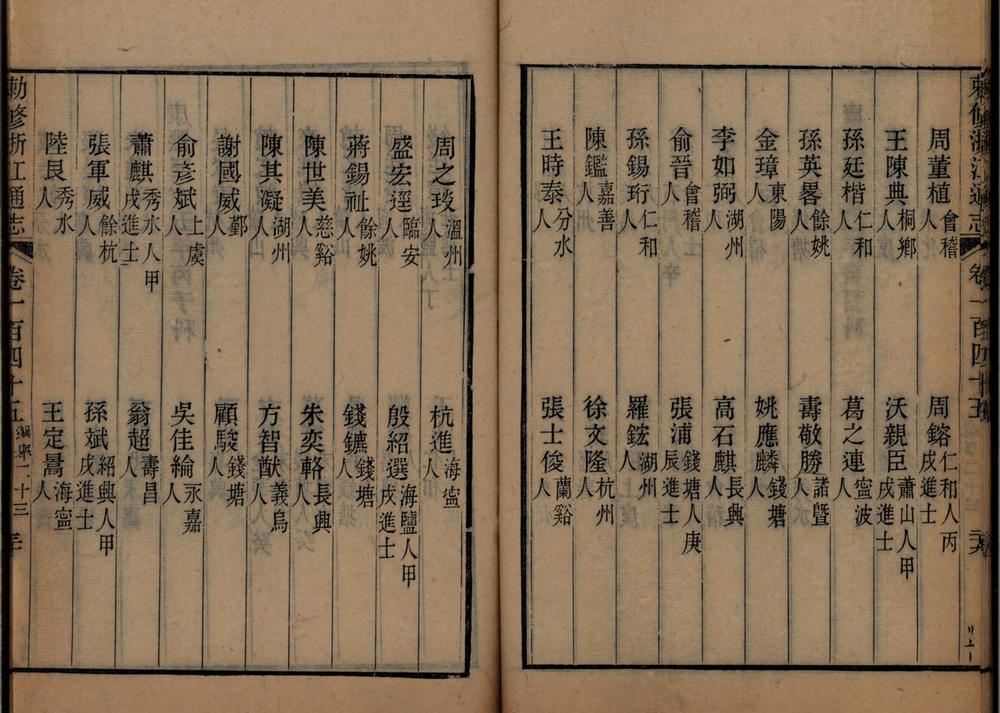 敕修浙江通志 卷一百四十五
周董植會稽人 周鎔仁和人丙戌進士
王陳典桐鄉人 沃親臣蕭山人甲戌進士
孫廷楷仁和人 葛之連寧波人
孫英畧餘姚人 壽敬勝諸暨人
金璋東陽人 姚應麟錢塘人
李如弼湖州人 高石麒長興人
俞晉會稽人 張浦錢塘人庚辰進士
孫錫珩仁和人 羅鋐湖州人
陳鑑嘉善人 徐文隆杭州人
王時泰分水人 張士俊蘭谿人
周之㺹溫州人 杭進海寧人
盛宏逕臨安人 殷紹選海鹽人甲戌進士
蔣錫祉餘姚人 錢鑣錢塘人
陳世美慈谿人 朱奕輅長興人
陳其凝湖州人 方智猷義烏人
謝國威鄞人 顧駿錢塘人
俞彥斌上虞人 吳佳綸永嘉人
蕭麒秀水人甲戌進士 翁超壽昌人
張軍威餘杭人 孫斌紹興人甲戌進士
陸艮秀水人 王定暠海寧人
勅修浙江通志 卷一百四十五 選舉二十三